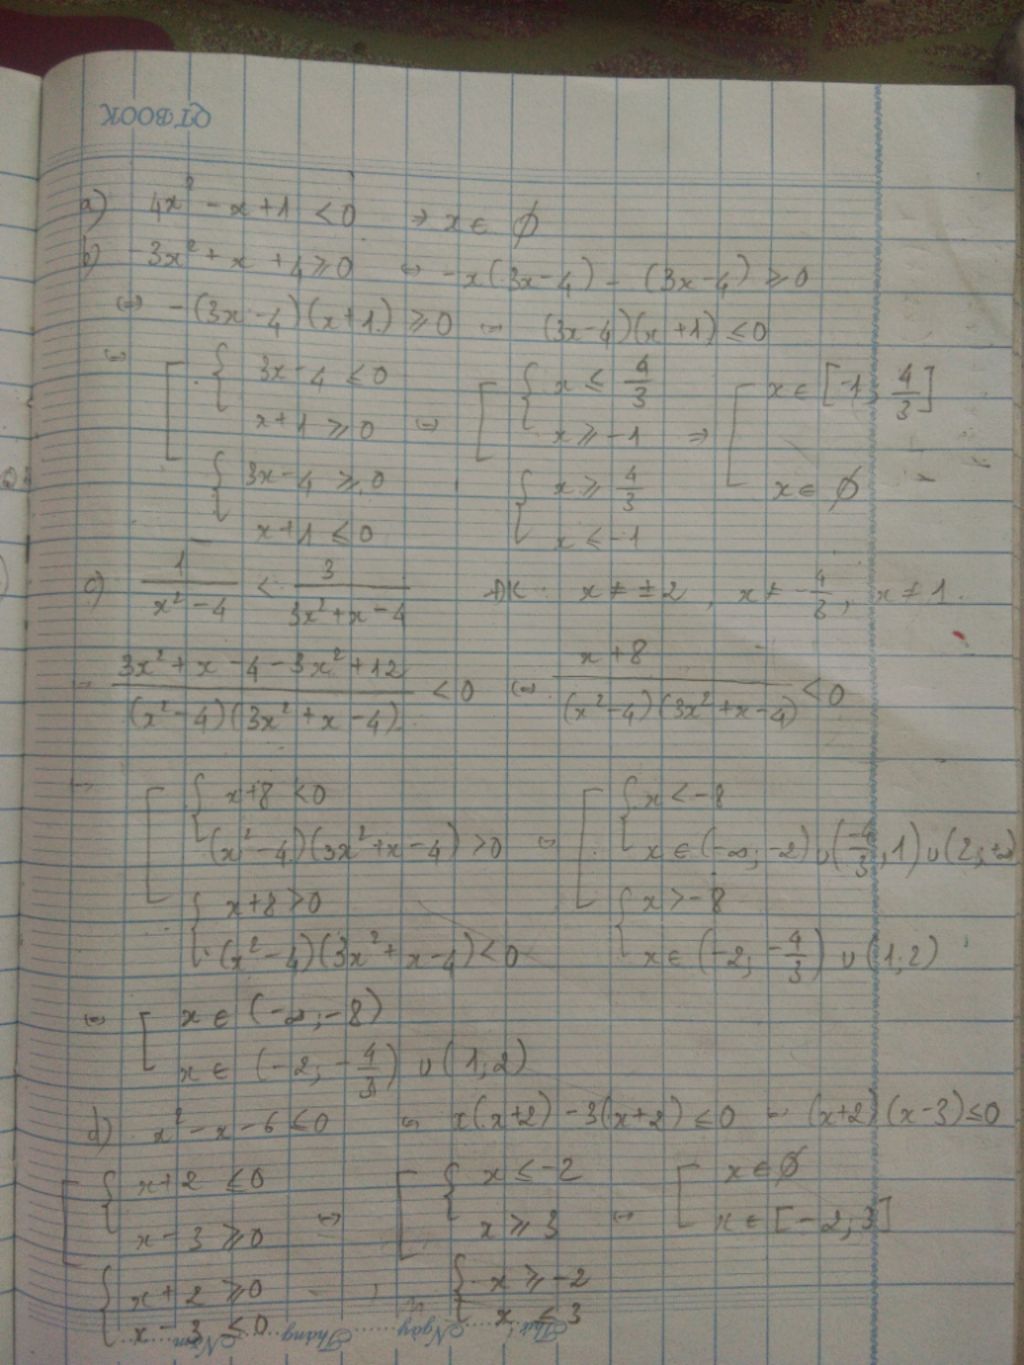 QT.BOOK
a) 4x² - x + 1 < 0 → x ∈ ∅
b) -3x² + x + 4 ≥ 0 ⇔ -x(3x-4) - (3x-4) ≥ 0
⇔ -(3x-4)(x+1) ≥ 0 ⇔ (3x-4)(x+1) ≤ 0
⇔ [ { 3x-4 ≤ 0 [ { x ≤ 4/3 [ x ∈ [-1; 4/3]
x+1 ≥ 0 ⇔ x ≥ -1 ⇒
{ 3x-4 ≥ 0 { x ≥ 4/3 x ∈ ∅
x+1 ≤ 0 x ≤ -1
c) 1/(x²-4) < 3/(3x²+x-4) ĐK: x ≠ ±2, x ≠ -4/3, x ≠ 1.
(3x²+x-4-3x²+12)/((x²-4)(3x²+x-4)) < 0 ⇔ (x+8)/((x²-4)(3x²+x-4)) < 0
[ { x+8 < 0 [ { x < -8
(x²-4)(3x²+x-4) > 0 ⇔ x ∈ (-∞; -2) ∪ (-4/3; 1) ∪ (2; +∞
{ x+8 > 0 { x > -8
(x²-4)(3x²+x-4) < 0 x ∈ (-2; -4/3) ∪ (1; 2)
⇔ [ x ∈ (-∞; -8)
x ∈ (-2; -4/3) ∪ (1; 2)
d) x² - x - 6 ≤ 0 ⇔ x(x+2) - 3(x+2) ≤ 0 ⇔ (x+2)(x-3) ≤ 0
[ { x+2 ≤ 0 [ { x ≤ -2 [ x ∈ ∅
x-3 ≥ 0 ⇔ x ≥ 3 ⇔ x ∈ [-2; 3]
{ x+2 ≥ 0 { x ≥ -2
x-3 ≤ 0 x ≤ 3
Thứ Ngày Tháng Năm